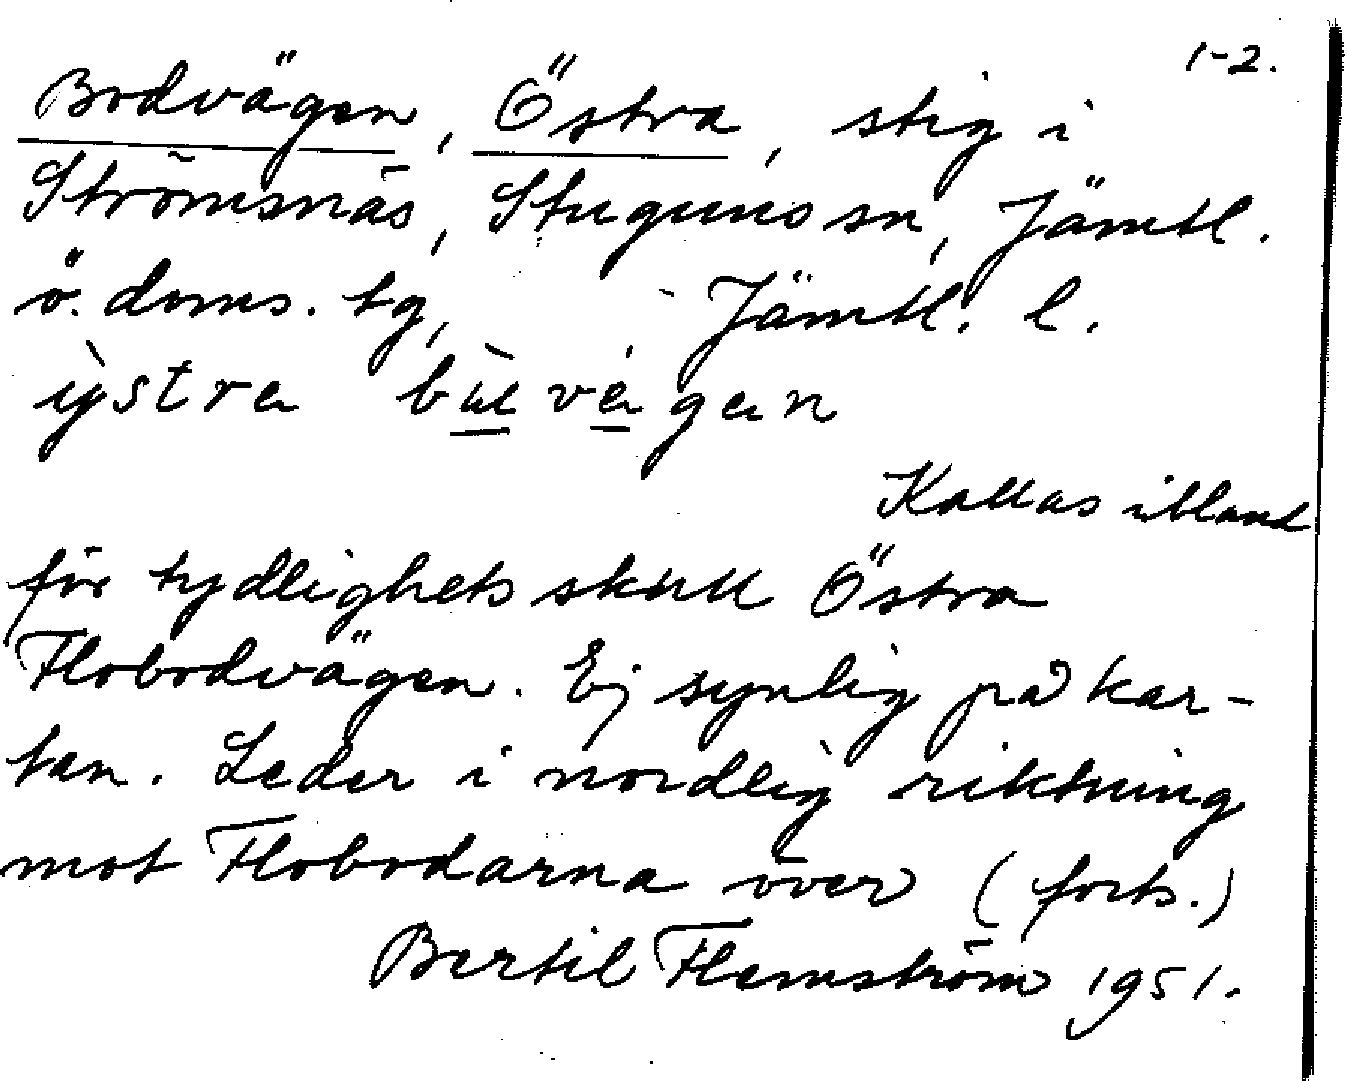 1-2.
Bodvägen, Östra, stig i
Strömsnäs, Stuguns sn, Jämtl.
ö. doms. tg, Jämtl. l.
Kallas ibland
för tydlighets skull Östra
Flobodvägen. Ej synlig på kar-
tan. Leder i nordlig riktning
mot Flobodarna över (forts.)
Bertil Flemström 1951.